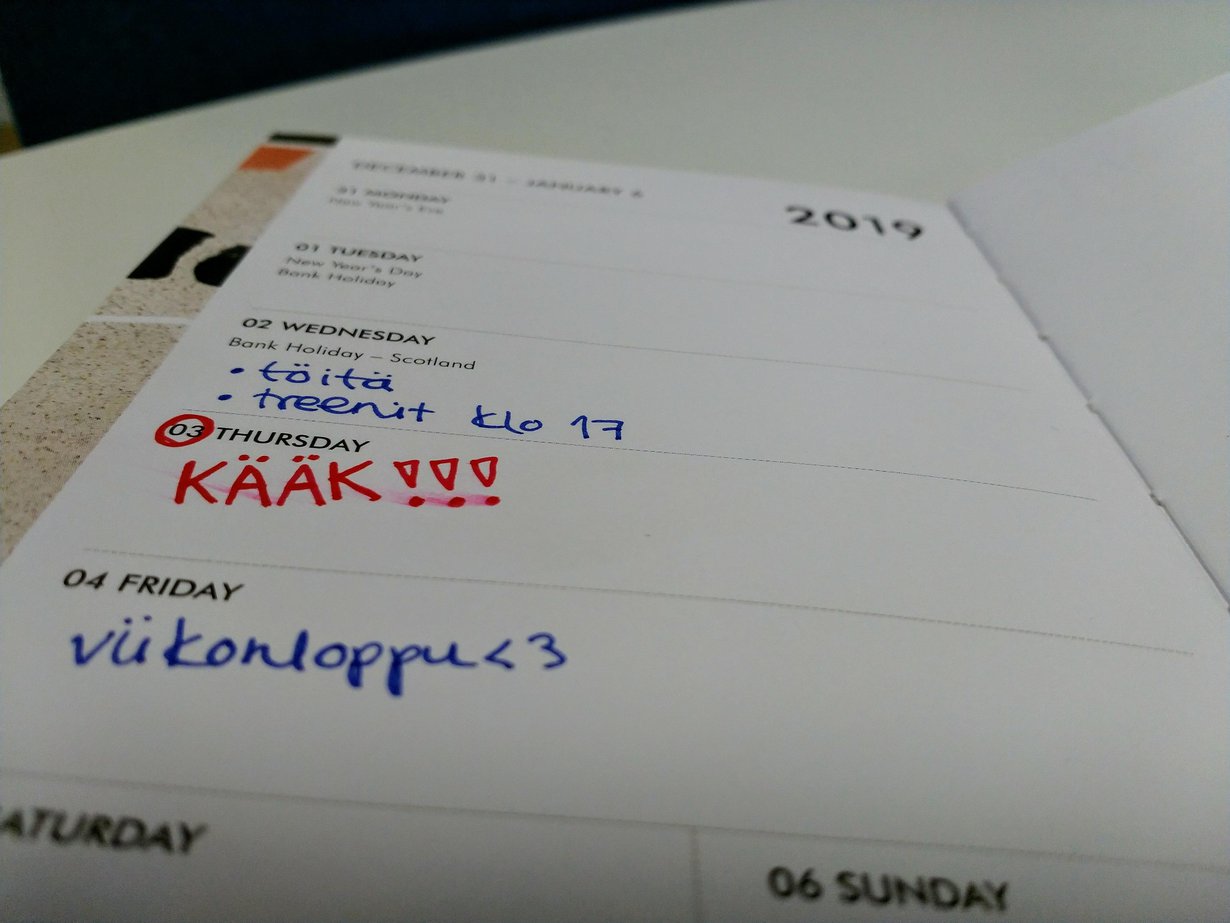 DECEMBER 31 – JANUARY 6
2019
31 MONDAY
New Year's Eve
01 TUESDAY
New Year's Day
Bank Holiday
02 WEDNESDAY
Bank Holiday – Scotland
• töitä
• treenit klo 17
03 THURSDAY
KÄÄK!!!
04 FRIDAY
viikonloppu <3
SATURDAY
06 SUNDAY